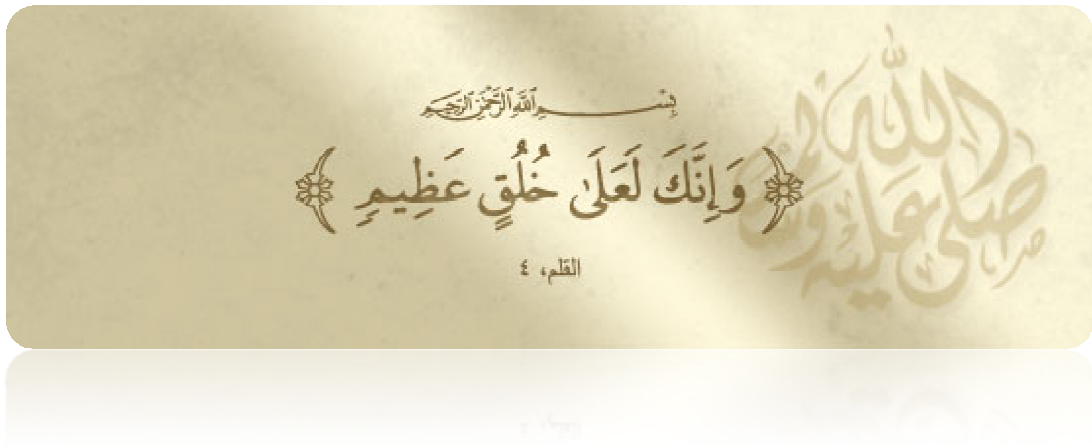 بِسْمِ اللَّهِ الرَّحْمَٰنِ الرَّحِيمِ
﴿ وَإِنَّكَ لَعَلَىٰ خُلُقٍ عَظِيمٍ ﴾
القلم، ٤
صلى الله عليه وسلم